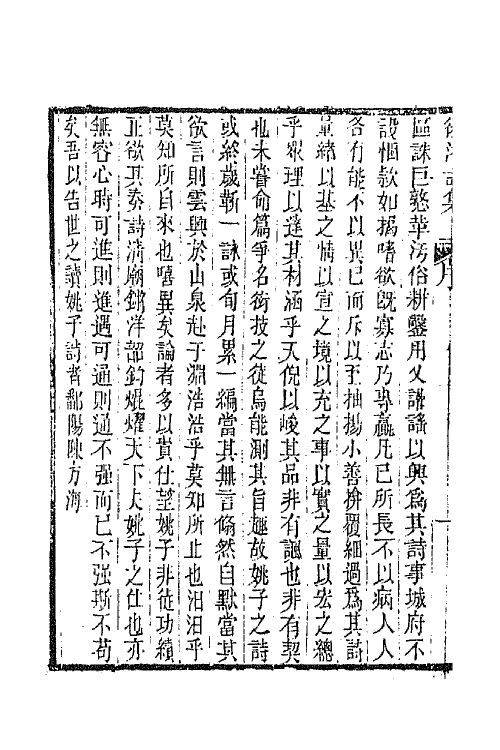 區誅巨憝革澆俗耕鑿用乂謳謠以興爲其詩事城府不
設悃款如搗嗜欲旣寡志乃專贏凡巳所長不以病人人
各有能不以異巳而斥以至抽揚小善揜覆細過爲其詩
量緒以基之情以宣之境以充之事以實之量以宏之總
乎衆理以逢其材涵乎天倪以峻其品非有謳也非有契
也未嘗命篇爭名衒技之徒烏能測其旨趣故姚子之詩
或終歲靳一詠或旬月累一編當其無言翛然自默當其
欲言則雲興於山泉赴于淵浩浩乎莫知所止也汨汨乎
莫知所自來也嘻異矣論者多以貴仕望姚子非徒功績
正欲其奏詩清廟鏘洋韶鈞焜燿天下夫姚子之仕也亦
無容心時可進則進遇可通則通不强而巳不强斯不苟
矣吾以告世之讀姚子詩者鄱陽陳方海